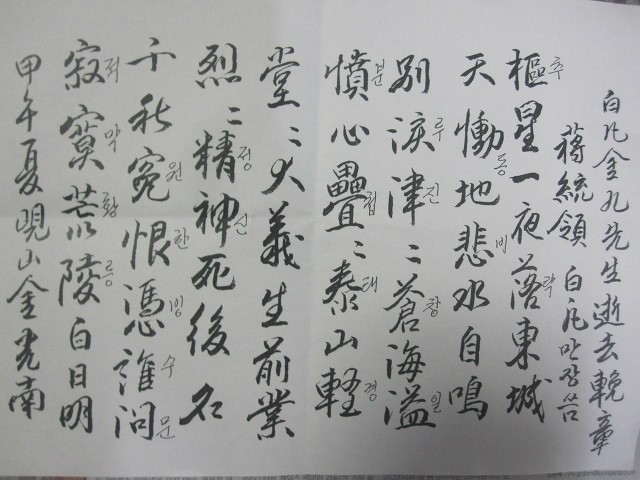 白凡金九先生逝去輓章
蔣統領 白凡만장씀
樞추星一夜落락東城
天慟동地悲비水自鳴
別淚루津진〻蒼창海溢일
憤분心疊첩〻泰태山軽경
堂〻大義生前業
烈〻精정神신死後名
千秋冤원恨한憑빙誰수問문
寂적寞막荒황陵릉白日明
甲午夏晛山金光南